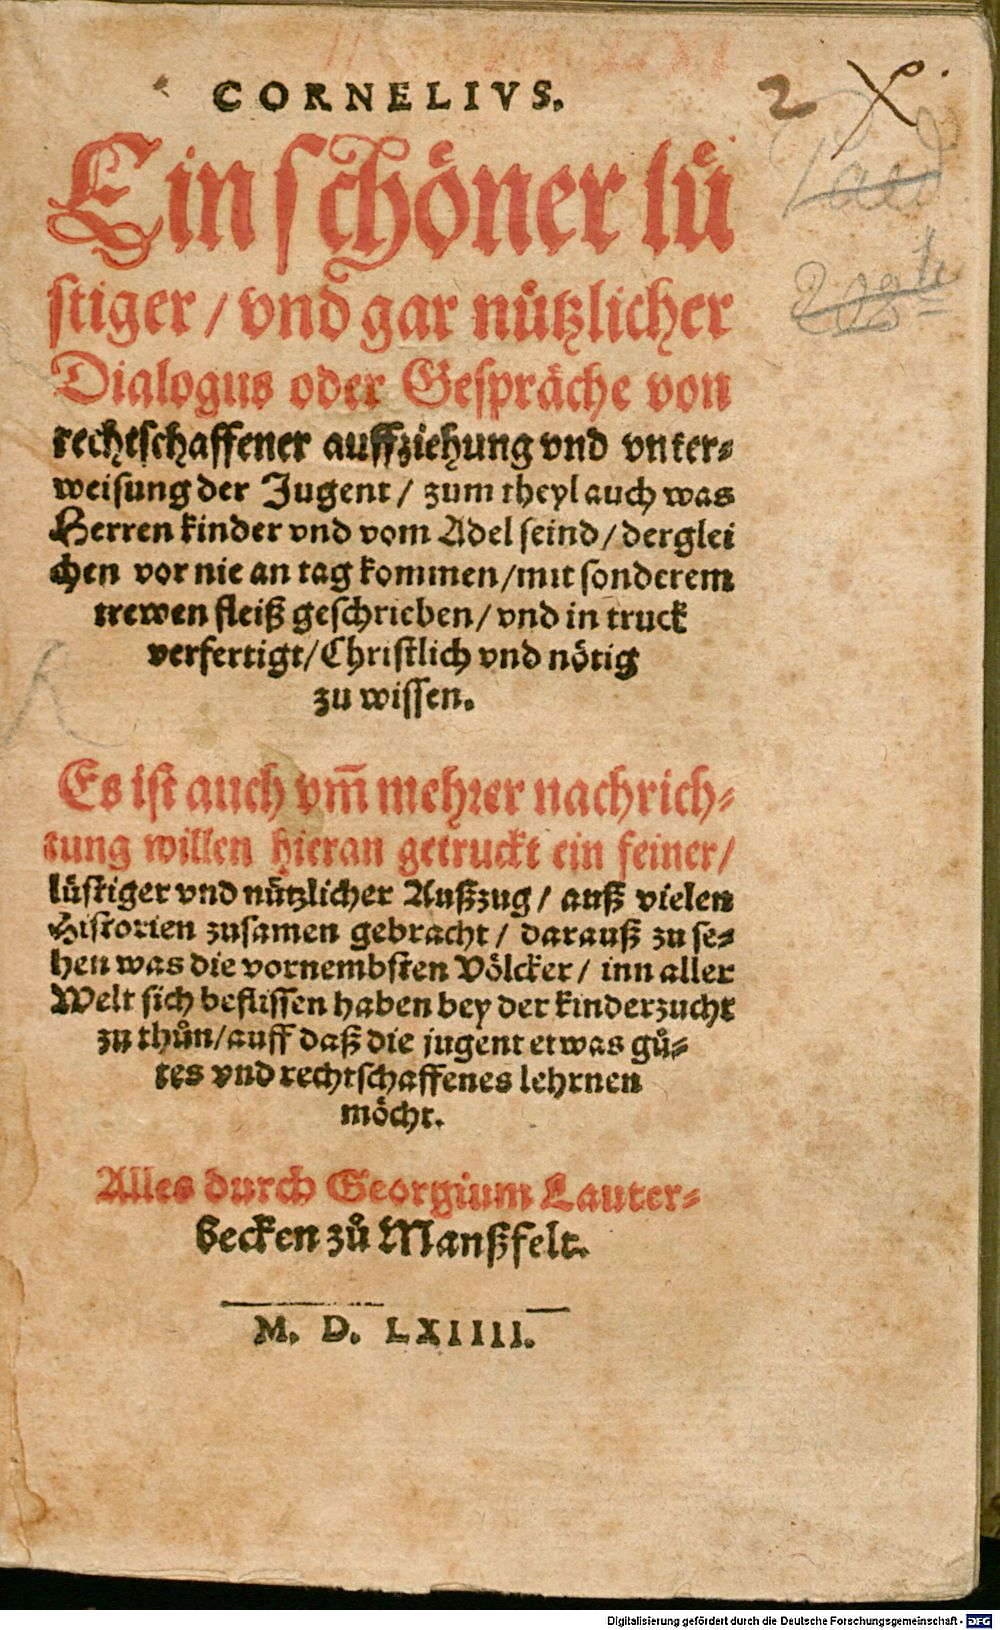 CORNELIVS.
Ein schöner lů
stiger / vnd gar nützlicher
Dialogus oder Gespräche von
rechtschaffener auffziehung vnd vnter-
weisung der Jugent / zum theyl auch was
Herren kinder vnd vom Adel seind / derglei
chen vor nie an tag kommen / mit sonderem
trewen fleiß geschrieben / vnd in truck
verfertigt / Christlich vnd nötig
zu wissen.
Es ist auch vm̄ mehrer nachrich-
tung willen hieran getruckt ein feiner /
lüstiger vnd nützlicher Außzug / auß vielen
Historien zusamen gebracht / darauß zu se-
hen was die vornembsten Völcker / inn aller
Welt sich beflissen haben bey der kinderzucht
zu thůn / auff daß die jugent etwas gů-
tes vnd rechtschaffenes lehrnen
möcht.
Alles durch Georgium Lauter-
becken zů Manßfelt.
M. D. LXIIII.
2 X
Digitalisierung gefördert durch die Deutsche Forschungsgemeinschaft - DFG